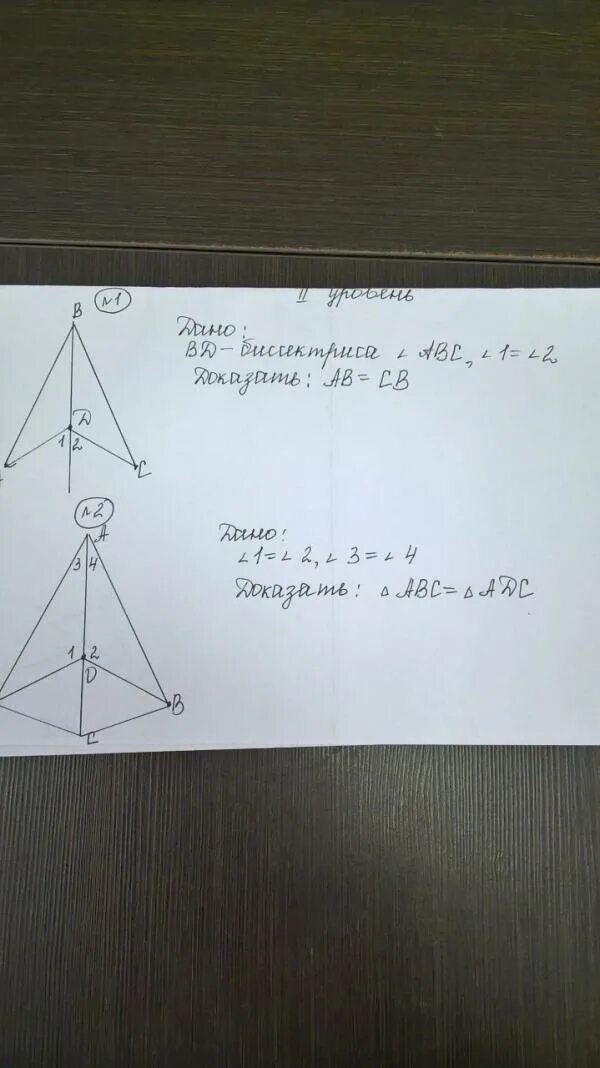 II уровень
№1
Дано:
BD - биссектриса ∠ ABC, ∠1 = ∠2
Доказать: AB = CB
B
D
1 2
C
№2
Дано:
∠1 = ∠2, ∠3 = ∠4
Доказать: △ ABC = △ ADC
A
3 4
1 2
D
B
C